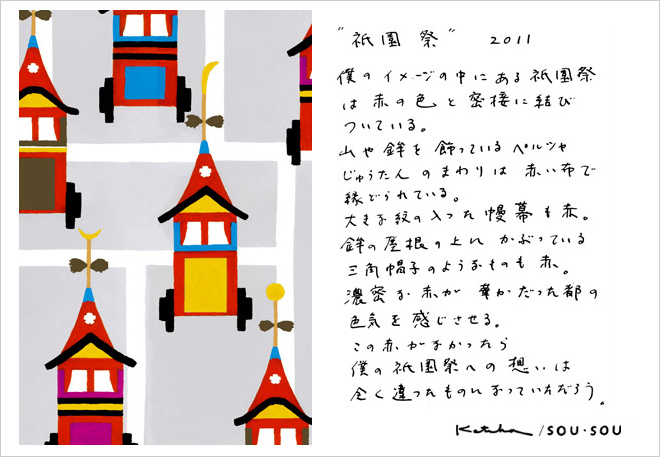 "祇園祭" 2011
僕のイメージの中にある祇園祭
は赤の色と密接に結び
ついている。
山や鉾を飾っているペルシャ
じゅうたんのまわりは赤い布で
縁どられている。
大きな紋の入った幔幕も赤。
鉾の屋根の上にかぶっている
三角帽子のようなものも赤。
濃密な赤が華かだった都の
色気を感じさせる。
この赤がなかったら
僕の祇園祭への想いは
全く違ったものになっていただろう。
Katsuji / SOU・SOU